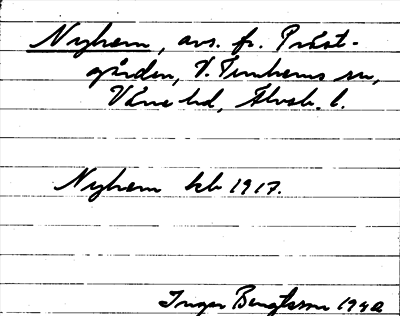 Nyhem, avs. fr. Präst-
gården, V. Tunhems sn,
Väne hd, Älvsb. l.
Nyhem kb 1917.
Inger Bengtsson 1942